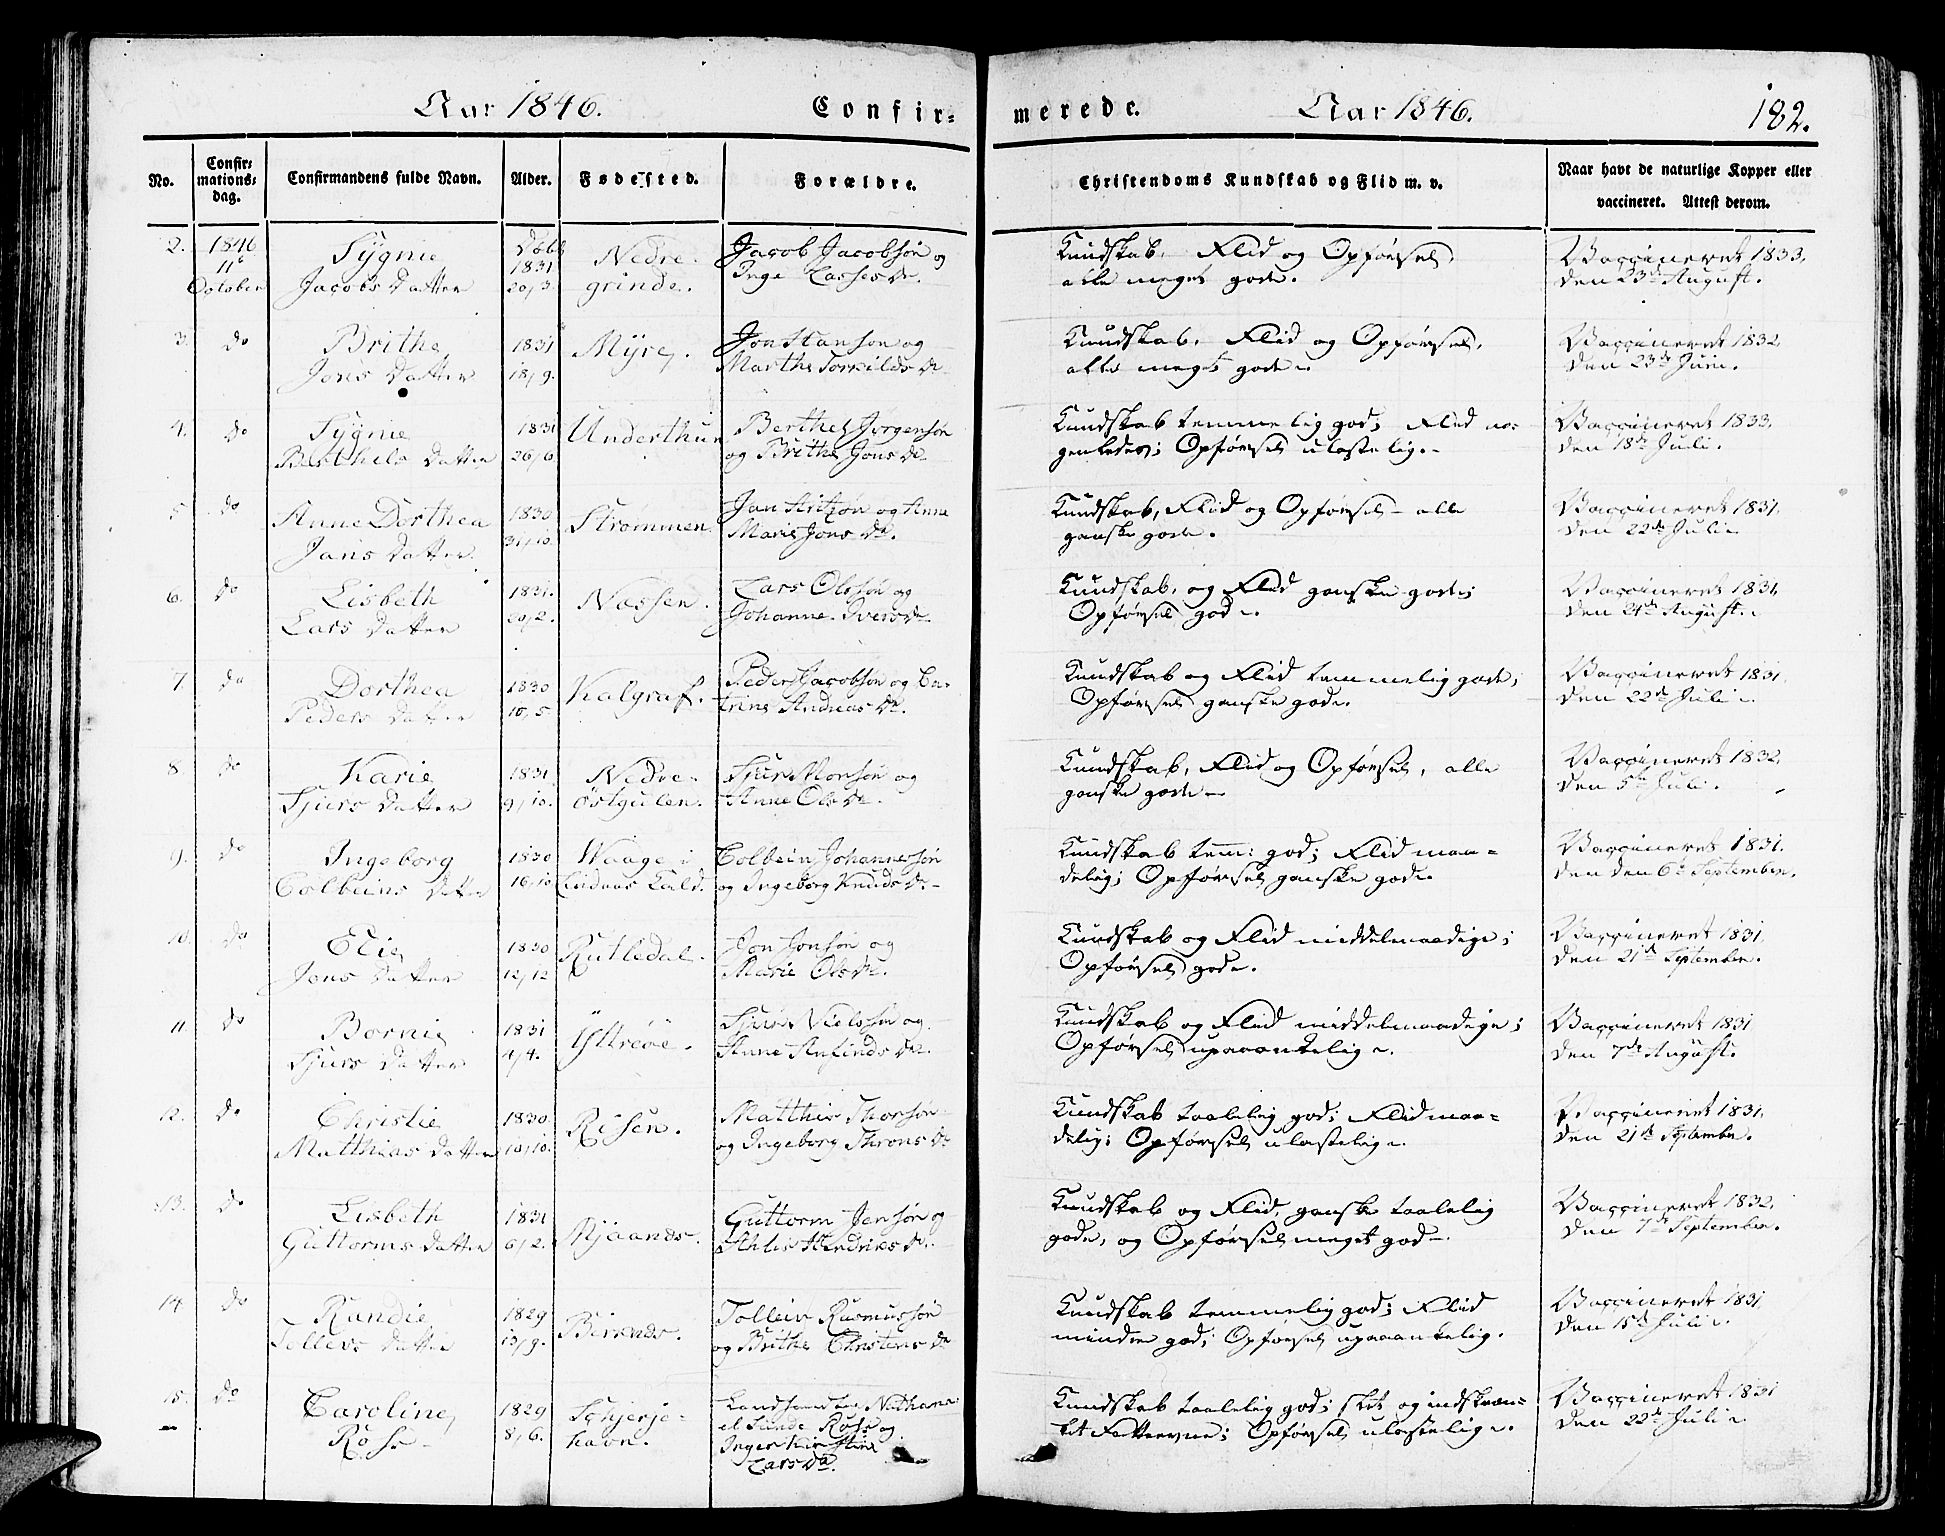 Aar 1846. Confir= merede. Aar 1846. 182.
No. Confir= mations= dag. Confirmandens fulde Navn. Alder. Fødested. Forældre. Christendoms Kundskab og Flid m. v. Naar havt de naturlige Kopper eller vaccineret. Attest derom.
2. 1846 Sÿgnie Døbt Nedre Jacob Jacobsøn og Kundskab, Flid og Opførsel, Vaccineret 1833,
11te October Jacobs Datter 1831 20/3 grinde. Inge Lasses Dr. alle meget gode. den 23de August.
3. do Brithe 1831 Mÿre, Jon Hansøn og Kundskab, Flid og Opførsel, Vaccineret 1832,
Jons Datter 18/9. Marthe Torkilds Dr alle meget gode. den 23de Juni.
4. do Sÿgnie 1831 Underthun Berthel Jørgensøn Kundskab temmelig god; Flid no= Vaccineret 1833,
Berthels Datter 26/6 og Brithe Jons Dr. genledes; Opførsel ulastelig. den 18de Juli.
5 do Anne Dorthea 1830 Strømmen Jan og Anne Kundskab, Flid og Opførsel alle Vaccineret 1831,
Jans Datter 31/10. Marie Jons Dr. ganske gode. den 22de Juli
6. do Lisbeth 1831. Næssen. Lars Olssøn og Kundskab, og Flid ganske gode; Vaccineret 1831,
Lars Datter 20/2. Johanne Ivers Dr. Opførsel god. den 24de August.
7 do Dorthea 1830 Kalgraf. Peder Jacobsøn og Ca= Kundskab og Flid temmelig gode; Vaccineret 1831,
Peders Datter 10/5. trine Andreas Dr. Opførsel ganske god. den 22de Juli
8 do Karie 1831 Nedre Sjur Monsøn og Kundskab, Flid og Opførsel, alle Vaccineret 1832,
Sjurs Datter 9/10. østgulen. Anne Ols Dr. ganske gode den 5te Juli.
9. do Ingeborg 1830 Waage i Colbein Johannessøn Kundskab tem: god; Flid maa= Vaccineret 1831.
Colbeins Datter 16/10 Lindaas Kald. og Ingeborg Knuds Dr delig; Opførsel ganske god. den den 6te September.
10. do Elie, 1830 Rutledal. Jon Jonsøn og Kundskab og Flid middelmaadige; Vaccineret 1831,
Jons Datter 12/12 Marie Ols Dr. Opførsel god. den 21de September.
11. do Børnie, 1831 Ÿttrøe. Sjur Nielssøn og Kundskab og Flid middelmaadige; Vaccineret 1831
Sjurs Datter 4/4. Anne Anfinds Dr. Opførsel upaaankelig. den 7de August.
12. do Christie 1830. Risen. Matthis Thorsøn Kundskab taalelig god; Flid maa= Vaccineret 1831,
Matthias Datter 10/10. og Ingeborg Throns Dr delig; Opførsel ulastelig. den 21de September.
13. do Lisbeth 1831 Guttorm Jensøn og Kundskab og Flid, ganske taalelig Vaccineret 1832,
Guttorms Datter 6/2. Hendriks Dr. gode, og Opførsel meget god. den 7de September.
14 do Randie 1829 Birknes. Tolleiv Rasmussøn Kundskab temmelig god; Flid Vaccineret 1831,
Tollevs Datter 13/9. og Brithe Christens Dr mindre god; Opførsel upaaankelig. den 15de Juli.
15. do Caroline, 1829 Schjerje= Landhandler Nathana= Kundskab taalelig god; slet og indskræn= Vaccineret 1831
Røss 8/6. havn. el Lunde Røss og ket Fatteevne; Opførsel ulastelig. den 22de Juli
Inger Kirstine
Lars Dr.